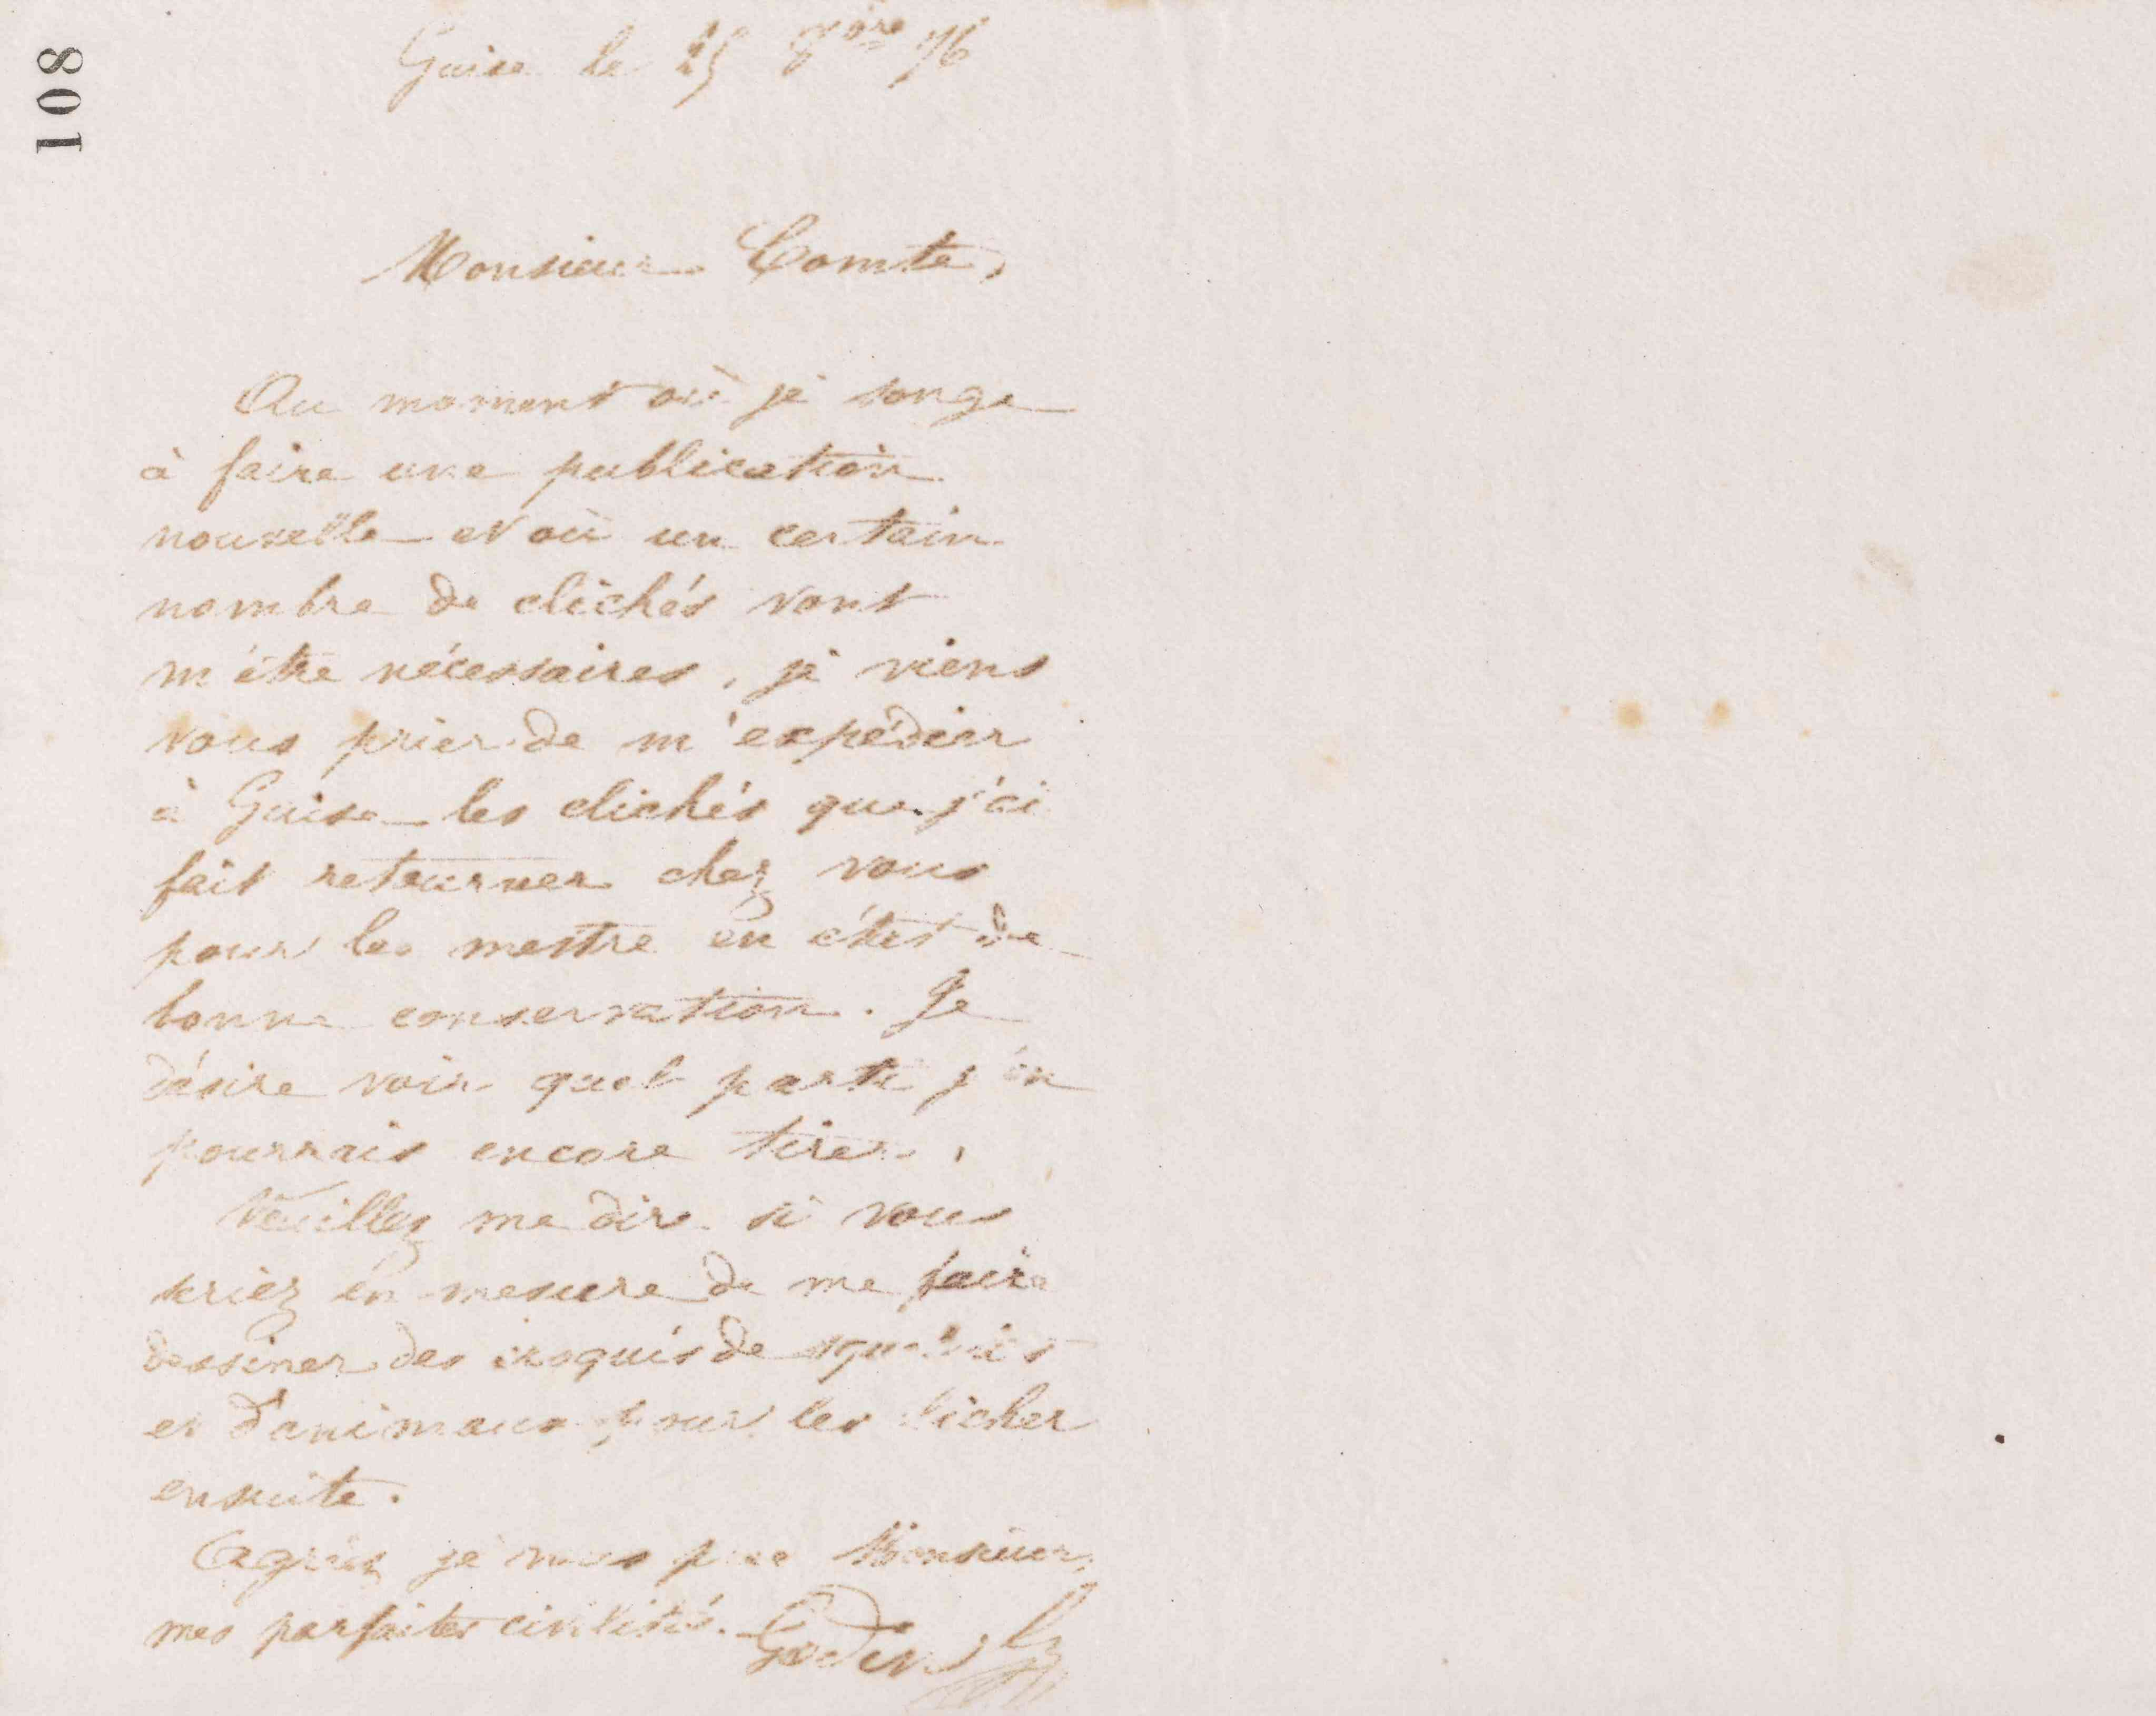 108
Guise le 25 8bre 76
Monsieur Comte,
Au moment où je songe
à faire une publication
nouvelle et où un certain
nombre de clichés vont
m'être nécessaires, je viens
vous prier de m'expédier
à Guise les clichés que j'ai
fait retourner chez vous
pour les mettre en état de
bonne conservation. Je
désire voir quel parti j'en
pourrais encore tirer.
Veuillez me dire si vous
seriez en mesure de me faire
dessiner des croquis de
et d'animaux pour les clicher
ensuite.
Agréez je vous prie Monsieur,
mes parfaites civilités. Godin